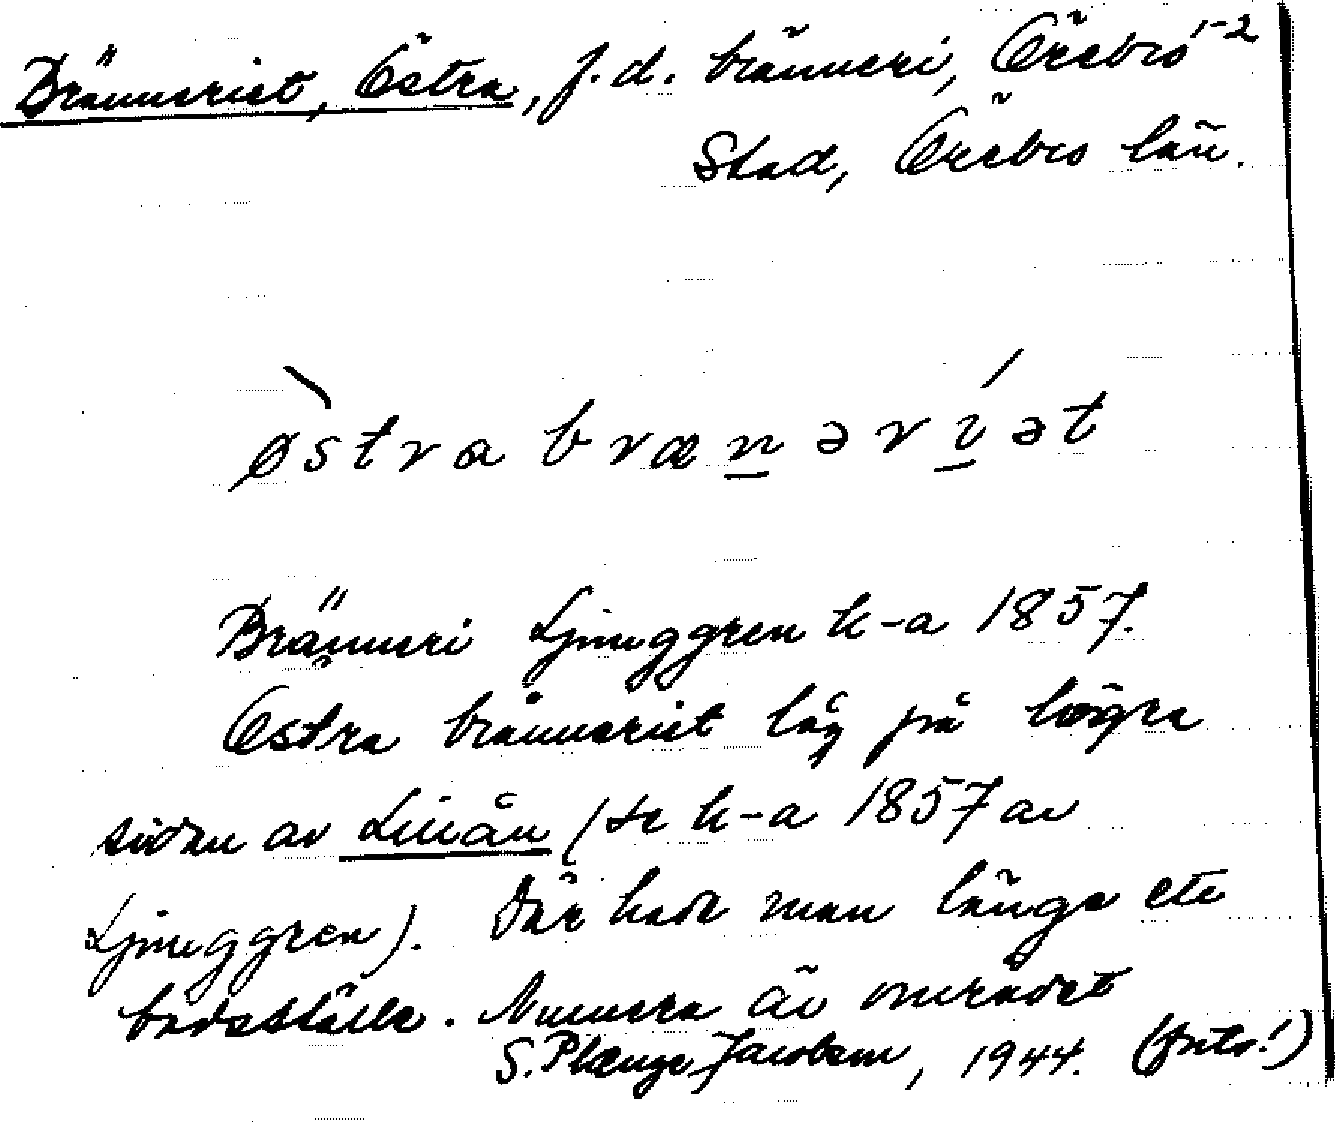 Bränneriet, Östra, f.d. bränneri, Örebro 1-2
Stad, Örebro län.
østra brænəríət
Bränneri Ljunggren k-a 1857.
Östra bränneriet låg på högra
sidan av Lillån (se k-a 1857 av
Ljunggren). Där hade man länge ett
badställe. Numera är området
S. Plænge Jacobson, 1944. (forts!)